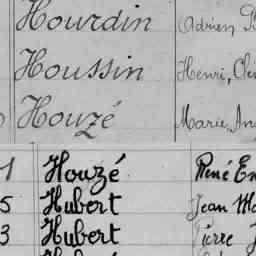 Hourdin Adrien
Houssin Henri,
Houzé Marie,
1 Houzé René
5 Hubert Jean
3 Hubert Pierre